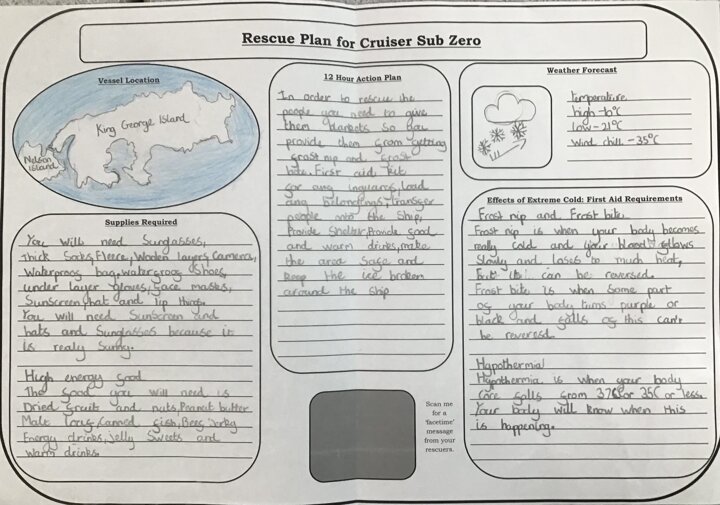 Rescue Plan for Cruiser Sub Zero
Vessel Location
King George Island
Nelson
Island
Supplies Required
You will need Sunglasses,
Thick Socks, Fleece, Woolen layers, Camera,
Waterproof bag, waterproof shoes,
under layer gloves, face masks,
Sunscreen, hat and lip thing.
You will need Sunscreen and
hats and Sunglasses because it
is realy Sunny.
High energy food
The food you will need is
Dried fruit and nuts, Peanut butter
Malt loaf, Canned fish, Beef Jerky
Energy drinks, Jelly Sweets and
warm drinks.
12 Hour Action Plan
In order to rescue the
people you need to give
them blankets So you
provide them from getting
frost nip and frost
bite. First aid kit
for any, Load
any belongings, transfer
people into the Ship,
Provide Shelter, Provide food
and warm drinks, make
the area Safe and
keep the ice broken
around the ship
Scan me
for a
'facetime'
message
from your
rescuers.
Weather Forecast
Temperature
high -10°C
low -21°C
Wind chill -35°C
Effects of Extreme Cold: First Aid Requirements
Frost nip and Frost bite.
Frost nip is when your body becomes
really cold and your blood flows
Slowly and loses to much heat,
but it can be reversed.
Frost bite is when Some part
of your body turns purple or
black and falls of this can't
be reversed.
Hypothermia
Hypothermia is when your body
Core falls from 37°C or 35C or less.
Your body will know when this
is happening.